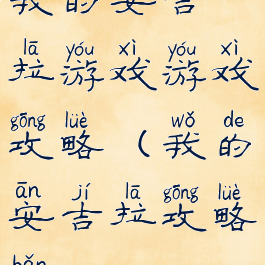 我的安吉
lā yóu xì yóu xì
拉游戏游戏
gōng lüè wǒ de
攻略（我的
ān jí lā gōng lüè
安吉拉攻略
bǎn